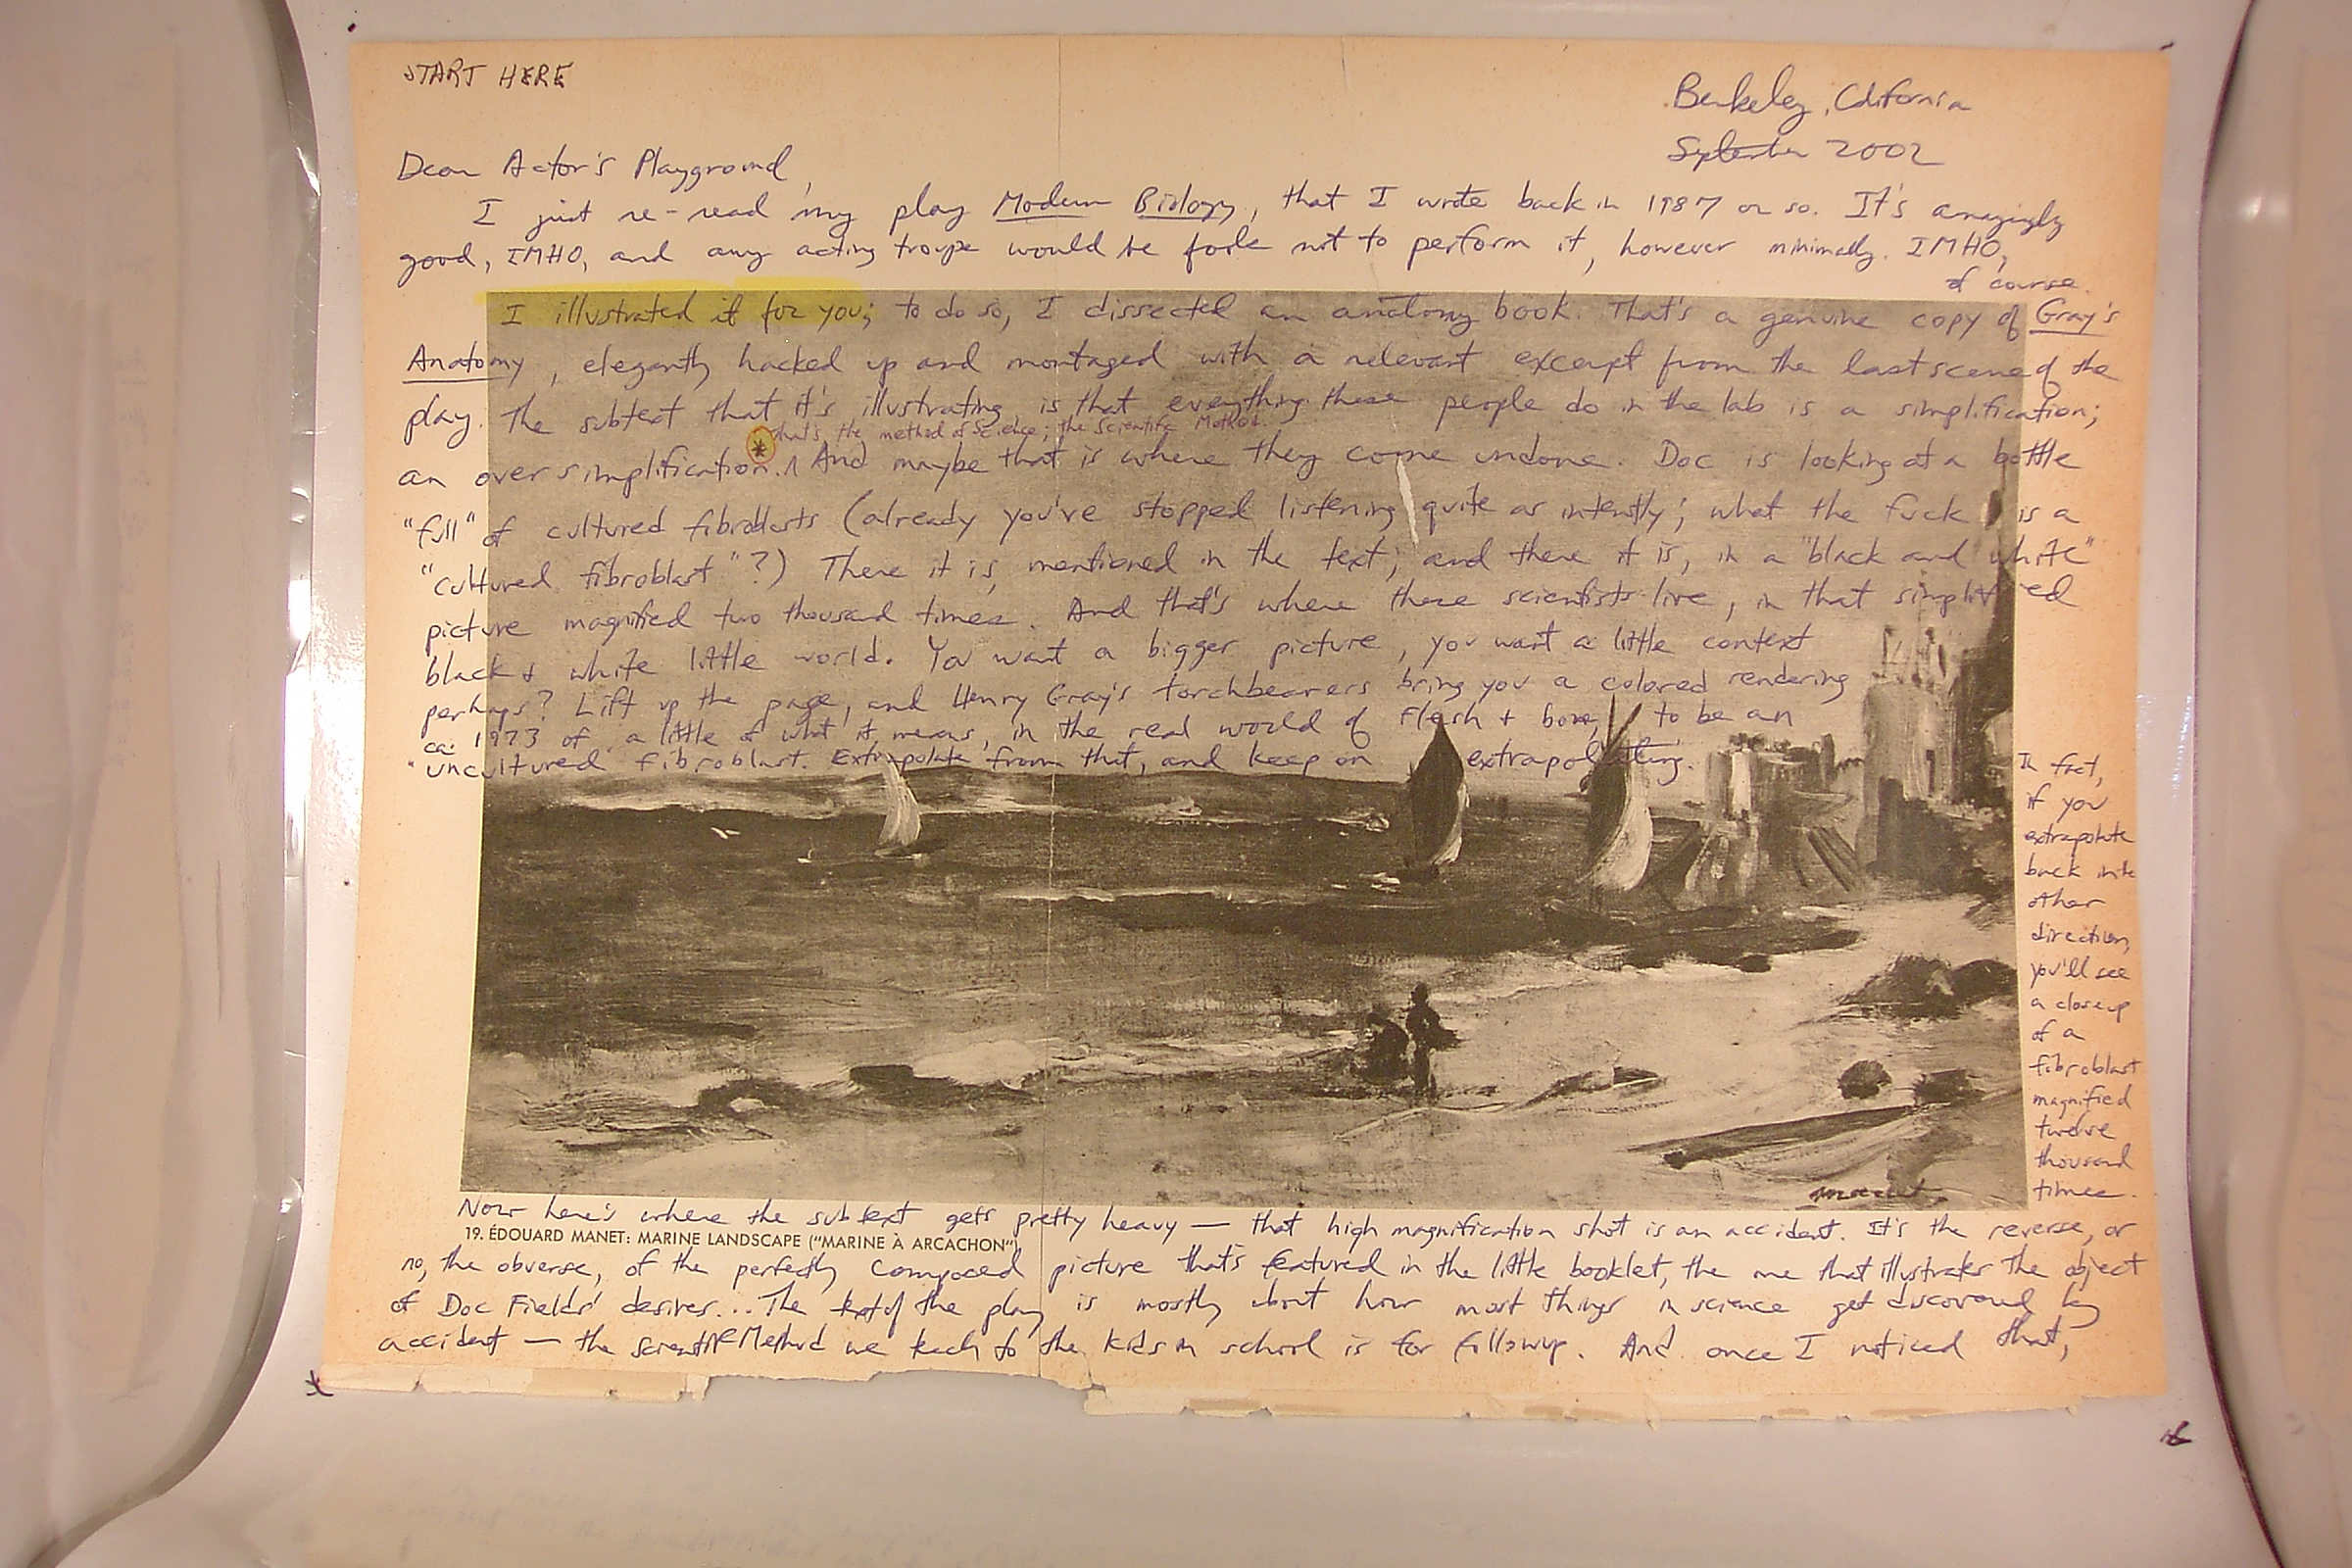 START HERE
Berkeley, California
September 2002
Dear Actor's Playground,
I just re-read my play Modern Biology, that I wrote back in 1987 or so. It's amazingly
good, IMHO, and any acting troupe would be fools not to perform it, however minimally. IMHO,
of course.
I illustrated it for you; to do so, I dissected an anatomy book. That's a genuine copy of Gray's
Anatomy, elegantly hacked up and montaged with a relevant excerpt from the last scene of the
play. The subtext that it's illustrating, is that everything these people do in the lab is a simplification;
that's the method of Science; the Scientific Method.
an over simplification. * And maybe that is where they come undone. Doc is looking at a bottle
"full" of cultured fibroblasts (already you've stopped listening quite as intently; what the fuck is a
"cultured fibroblast"?) There it is, mentioned in the text; and there it is, in a "black and white"
picture magnified two thousand times. And that's where these scientists live, in that simplified
black & white little world. You want a bigger picture, you want a little context
perhaps? Lift up the page, and Henry Gray's torchbearers bring you a colored rendering
ca. 1973 of a little of what it means, in the real world of flesh & bone, to be an
"uncultured" fibroblast. Extrapolate from that, and keep on extrapolating.
In fact,
if you
extrapolate
back in the
other
direction,
you'll see
a closeup
of a
fibroblast
magnified
twelve
thousand
times.
manet
Now here's where the subtext gets pretty heavy — that high magnification shot is an accident. It's the reverse, or
19. ÉDOUARD MANET: MARINE LANDSCAPE ("MARINE À ARCACHON")
no, the obverse, of the perfectly composed picture that's featured in the little booklet, the one that illustrates the object
of Doc Fields' desires... The text of the play is mostly about how most things in science get discovered by
accident — the Scientific Method we teach to the kids in school is for followup. And once I noticed that,